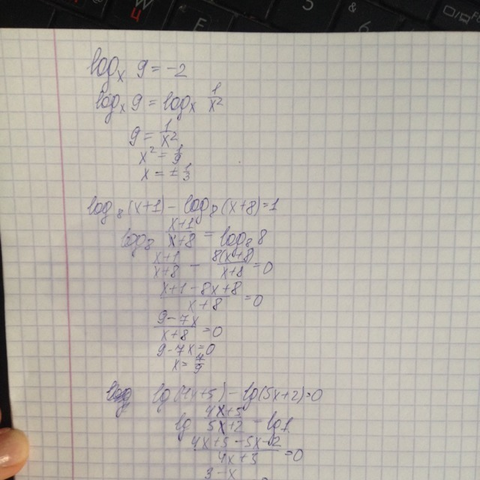 log_x 9 = -2
log_x 9 = log_x 1/x²
9 = 1/x²
x² = 1/9
x = ± 1/3
log_8 (x+1) - log_8 (x+8) = 1
log_8 (x+1)/(x+8) = log_8 8
(x+1)/(x+8) - 8(x+8)/(x+8) = 0
(x+1-8x+8)/(x+8) = 0
(9-7x)/(x+8) = 0
9-7x=0
lg(4x+5) - lg(5x+2) = 0
lg (4x+5)/(5x+2) = lg1
(4x+5-5x-2)/(4x+5) = 0
3-x